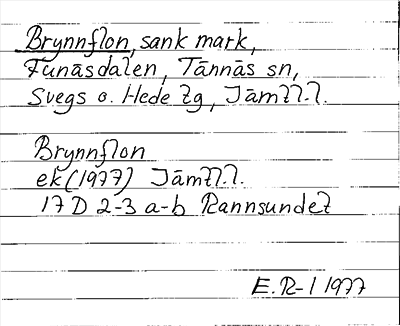 Brynnflon, sank mark,
Funäsdalen, Tännäs sn,
Svegs o. Hede tg, Jämtl.l.
Brynnflon
ek (1977) Jämtl.l.
17 D 2-3 a-b Rannsundet
E. R-l 1977